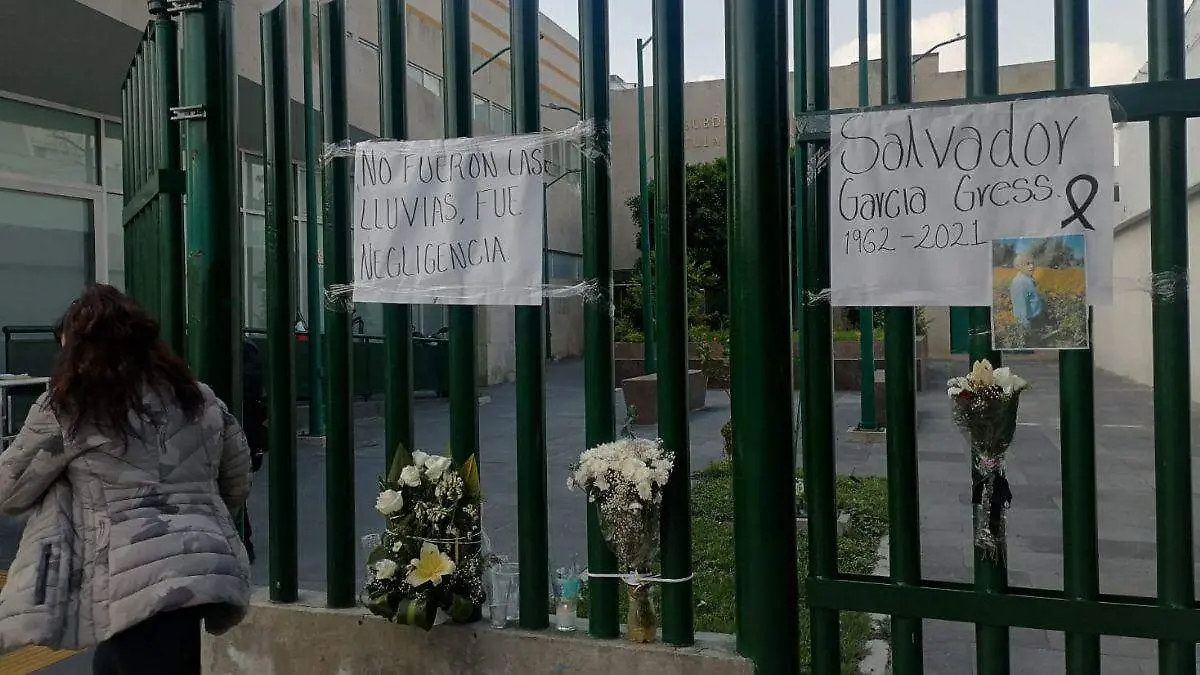 NO FUERON LAS
LLUVIAS, FUE
NEGLIGENCIA
Salvador
Garcia Gress.
1962-2021